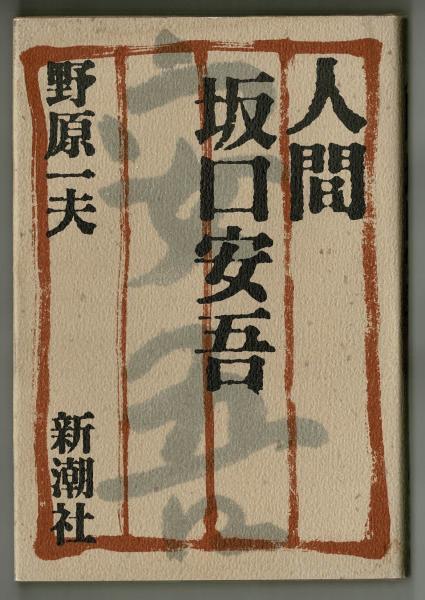 人間
坂口安吾
野原一夫
新潮社
安吾